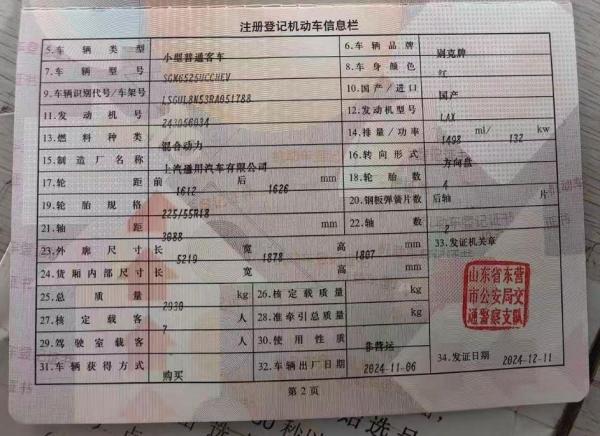 注册登记机动车信息栏
5.车辆类型 小型普通客车 6.车辆品牌 别克牌
7.车辆型号 SGM6525UCCHEV 8.车身颜色 红
9.车辆识别代号/车架号 LSGUL8N53RA051788 10.国产/进口 国产
11.发动机号 243056034 12.发动机型号 LAX
13.燃料种类 混合动力 14.排量/功率 1498 ml/ 132 kw
15.制造厂名称 上汽通用汽车有限公司 16.转向形式 方向盘
17.轮距 前 1612 后 1626 mm 18.轮胎数 4
19.轮胎规格 225/55R18 20.钢板弹簧片数 后轴 片
21.轴距 3088 mm 22.轴数 2
23.外廓尺寸 长 5219 宽 1878 高 1807 mm 33.发证机关章
24.货厢内部尺寸 长 宽 高 mm
山东省东营
市公安局交
通警察支队
25.总质量 2930 kg 26.核定载质量 kg
27.核定载客 7 人 28.准牵引总质量 kg
29.驾驶室载客 人 30.使用性质 非营运
31.车辆获得方式 购买 32.车辆出厂日期 2024-11-06 34.发证日期 2024-12-11
第2页